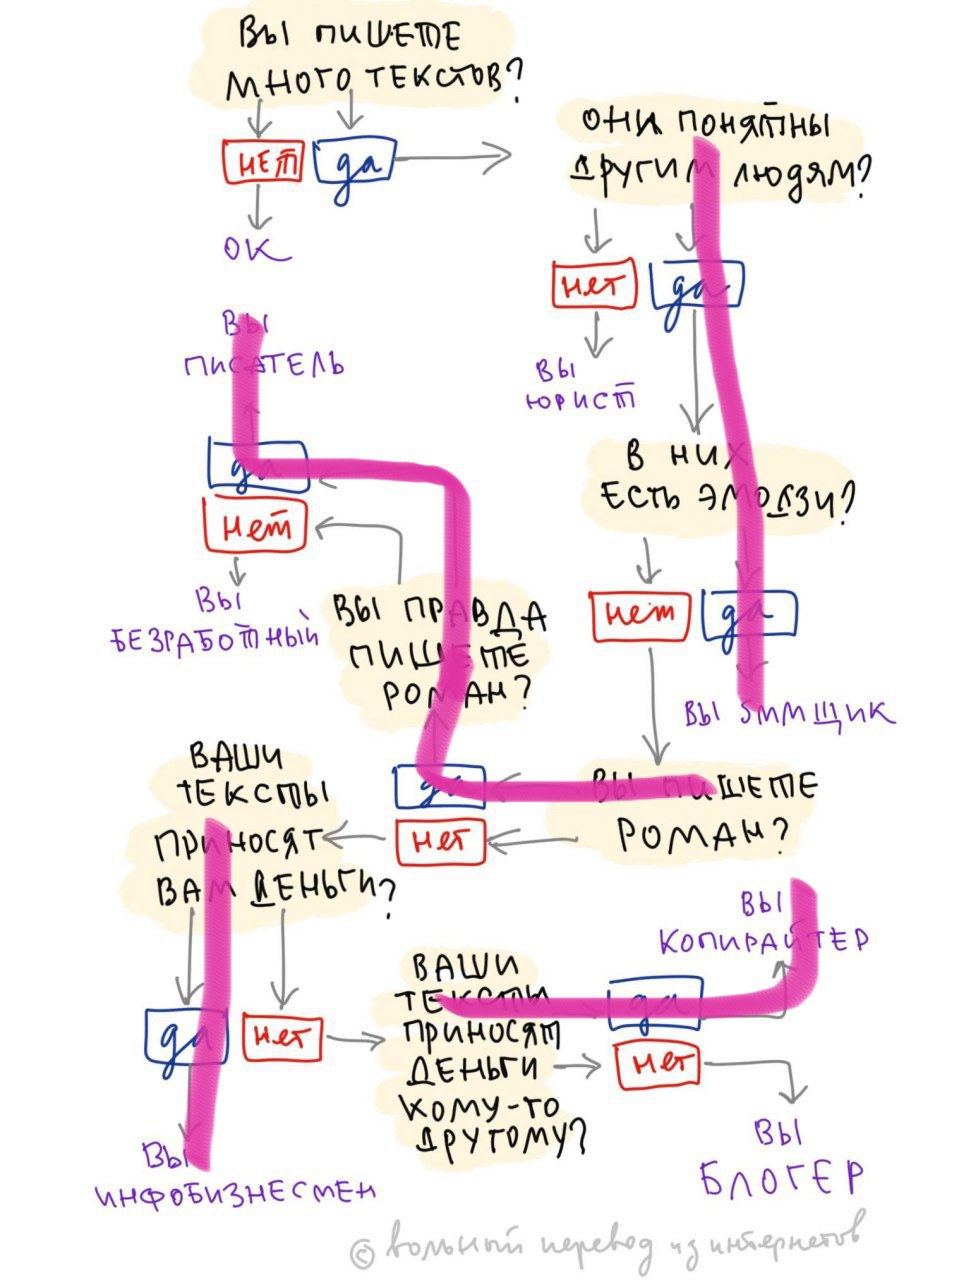 ВЫ ПИШЕТЕ
МНОГО ТЕКСТОВ?
НЕТ
да
ОК
ОНИ ПОНЯТНЫ
ДРУГИМ ЛЮДЯМ?
нет
да
ВЫ
ЮРИСТ
В НИХ
ЕСТЬ ЭМОДЗИ?
нет
да
ВЫ SMMЩИК
ВЫ ПИШЕТЕ
РОМАН?
да
нет
ВЫ ПРАВДА
ПИШЕТЕ
РОМАН?
да
нет
ВЫ
ПИСАТЕЛЬ
ВЫ
БЕЗРАБОТНЫЙ
ВАШИ
ТЕКСТЫ
ПРИНОСЯТ
ВАМ ДЕНЬГИ?
да
нет
ВЫ
ИНФОБИЗНЕСМЕН
ВАШИ
ТЕКСТЫ
ПРИНОСЯТ
ДЕНЬГИ
КОМУ-ТО
ДРУГОМУ?
да
нет
ВЫ
КОПИРАЙТЕР
ВЫ
БЛОГЕР
© вольный перевод из интернетов